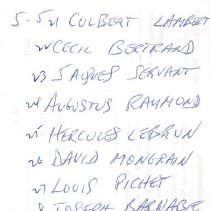 5-521 COLBERT LAMBERT
22 CECIL BERTRAND
23 JAQUES SERVANT
24 AUGUSTUS RAYMOND
25 HERCULES LEBRUN
26 DAVID MONGRAIN
27 LOUIS PICHET
8 JOSEPH BARNABE